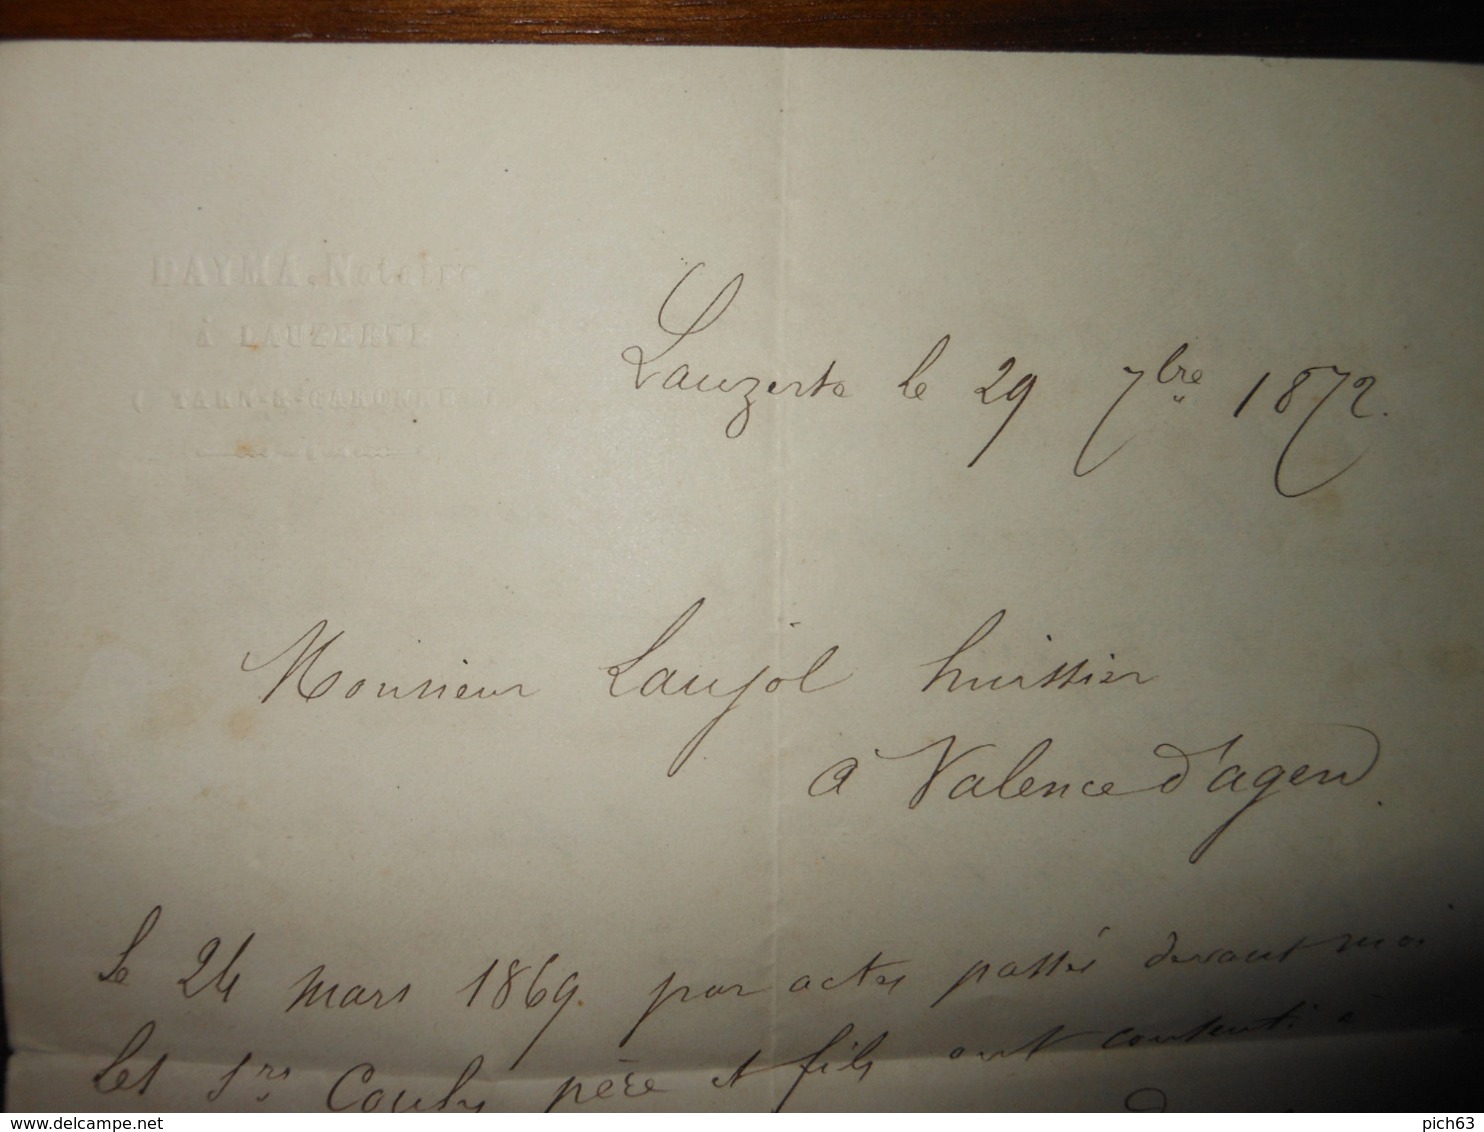 DAYMA. Notaire
À LAUZERTE
( TARN-&-GARONNE )
Lauzerte le 29 7bre 1872.
Monsieur Laujol huissier
à Valence d'agen
le 24 mars 1869. par actes passés devant moi
les Srs Couly père et fils ont consenti à
pich63